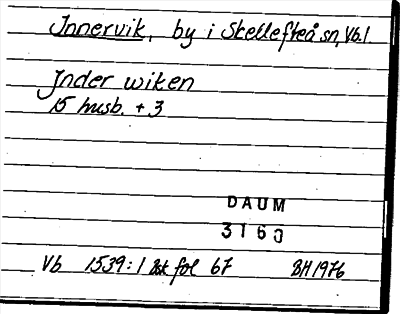 Innervik, by i Skellefteå sn, Vb.
Inder wiken
15 husb. + 3
DAUM
3160
Vb 1539:1 Bsk fol 67 BH 1976